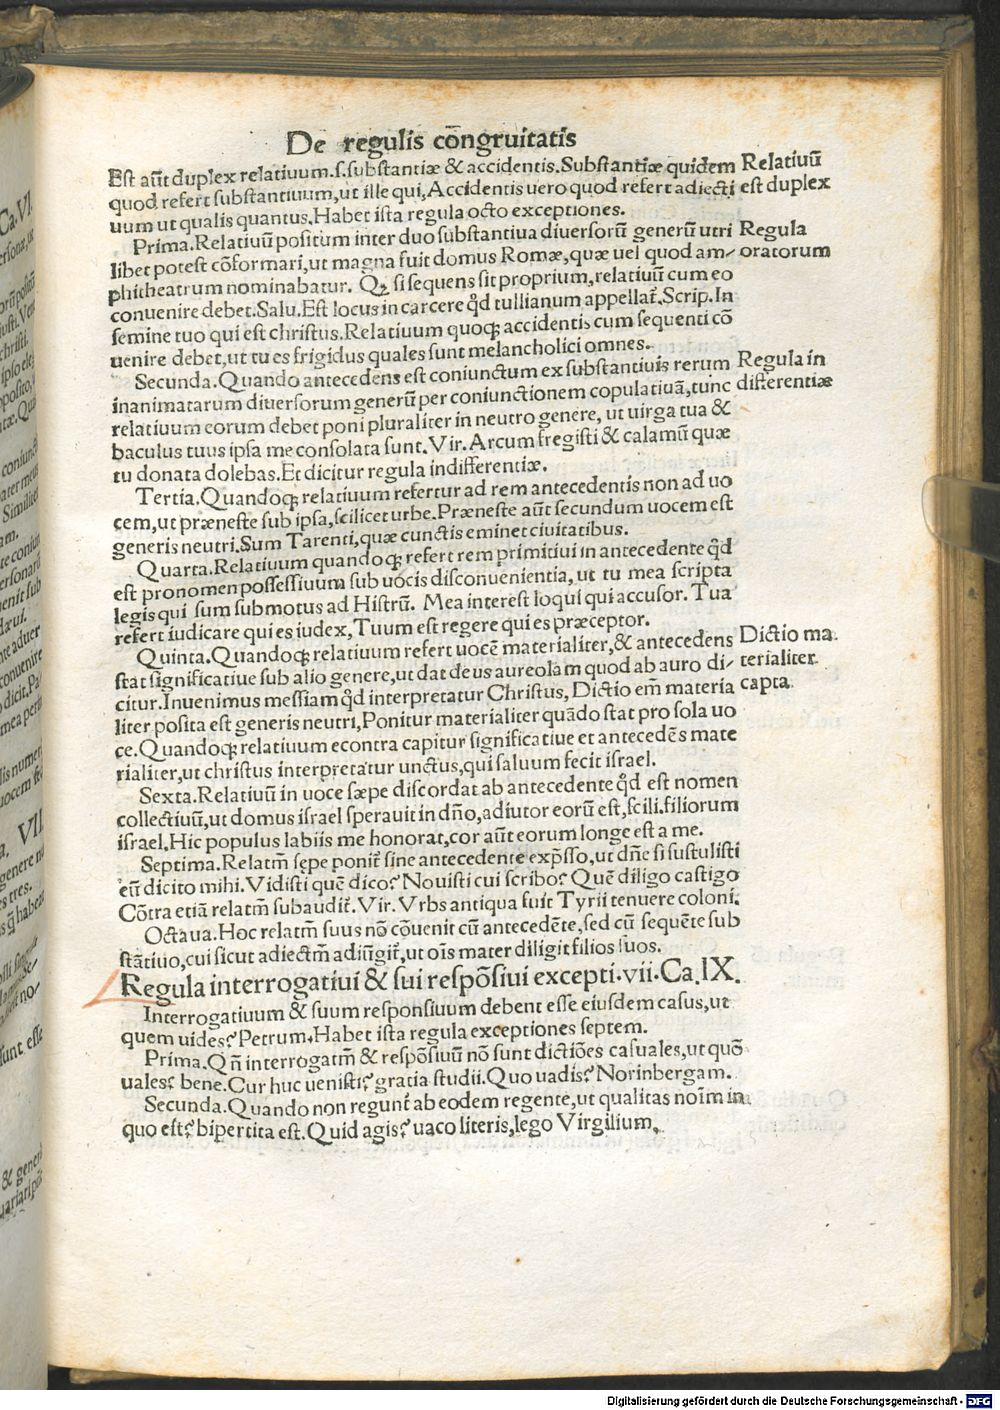 De regulis cōngruitatis
Est aūt duplex relatiuum.s.substantiæ & accidentis.Substantiæ quidem
quod refert substantiuum,ut ille qui,Accidentis uero quod refert adiecti
uum ut qualis quantus.Habet ista regula octo exceptiones.
Prima.Relatiuū positum inter duo substantiua diuersorū generū utri
libet potest cōformari,ut magna fuit domus Romæ,quæ uel quod am-
phitheatrum nominabatur. Qꝫ si sequens sit proprium,relatiuū cum eo
conuenire debet.Salu.Est locus in carcere qd̄ tullianum appellat̄.Scrip.In
semine tuo qui est christus.Relatiuum quoqꝫ accidentis cum sequenti cō
uenire debet,ut tu es frigidus quales sunt melancholici omnes.
Secunda.Quando antecedens est coniunctum ex substantiuis rerum
inanimatarum diuersorum generū per coniunctionem copulatiuā,tunc
relatiuum eorum debet poni pluraliter in neutro genere, ut uirga tua &
baculus tuus ipsa me consolata sunt.Vir.Arcum fregisti & calamū quæ
tu donata dolebas.Et dicitur regula indifferentiæ.
Tertia.Quandoqꝫ relatiuum refertur ad rem antecedentis non ad uo
cem,ut præneste sub ipsa,scilicet urbe.Præneste aūt secundum uocem est
generis neutri.Sum Tarenti,quæ cunctis eminet ciuitatibus.
Quarta.Relatiuum quandoqꝫ refert rem primitiui in antecedente qd̄
est pronomen possessiuum sub uocis disconuenientia, ut tu mea scripta
legis qui sum submotus ad Histrū. Mea interest loqui qui accusor. Tua
refert iudicare qui es iudex,Tuum est regere qui es præceptor.
Quinta.Quandoqꝫ relatiuum refert uocē materialiter,& antecedens
stat significatiue sub alio genere,ut dat deus aureolam quod ab auro di-
citur.Inuenimus messiam qd̄ interpretatur Christus, Dictio em̄ materia
liter posita est generis neutri,Ponitur materialiter quādo stat pro sola uo
ce.Quandoqꝫ relatiuum econtra capitur significatiue et antecedēs mate
rialiter,ut christus interpretatur unctus,qui saluum fecit israel.
Sexta.Relatiuū in uoce sæpe discordat ab antecedente qd̄ est nomen
collectiuū,ut domus israel sperauit in dn̄o,adiutor eorū est,scili.filiorum
israel.Hic populus labiis me honorat,cor aūt eorum longe est a me.
Septima.Relatm̄ sępe ponit̄ sine antecedente exp̄sso,ut dn̄e si sustulisti
eū dicito mihi.Vidisti quē dico? Nouisti cui scribo? Quē diligo castigo
Cōtra etiā relatm̄ subaudit̄.Vir.Vrbs antiqua fuit Tyrii tenuere coloni.
Octaua.Hoc relatm̄ suus nō cōuenit cū antecedēte,sed cū sequēte sub
stātiuo,cui sicut adiectm̄ adiūgit̄,ut oīs mater diligit filios suos.
Regula interrogatiui & sui respōsiui excepti.vii.Ca.IX.
Interrogatiuum & suum responsiuum debent esse eiusdem casus,ut
quem uides? Petrum.Habet ista regula exceptiones septem.
Prima.Qn̄ interrogatm̄ & respōsiuū nō sunt dictiōes casuales,ut quō
uales? bene.Cur huc uenisti? gratia studii.Quo uadis? Norinbergam.
Secunda.Quando non regunt̄ ab eodem regente,ut qualitas noīm in
quo est? bipertita est.Quid agis? uaco literis,lego Virgilium.
Relatiuū
est duplex
Regula
oratorum
Regula in
differentiæ
Dictio ma.
terialiter
capta
Ca.VI.
VII.
Digitalisierung gefördert durch die Deutsche Forschungsgemeinschaft - DFG